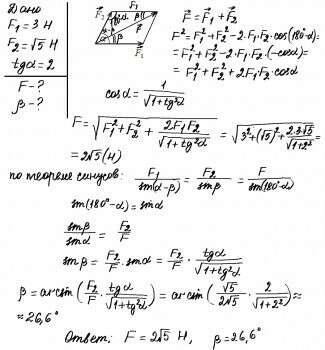 Дано
F₁ = 3 Н
F₂ = √5 Н
tgα = 2
F - ?
β - ?
F⃗ = F⃗₁ + F⃗₂
F² = F₁² + F₂² - 2·F₁·F₂·cos(180°-α) =
= F₁² + F₂² - 2·F₁·F₂·(-cosα) =
= F₁² + F₂² + 2F₁F₂cosα
cosα = 1/√(1+tg²α)
F = √(F₁² + F₂² + 2F₁F₂/√(1+tg²α)) = √(3² + (√5)² + 2·3·√5/√(1+2²)) =
= 2√5 (Н)
по теореме синусов: F₁/sin(α-β) = F₂/sinβ = F/sin(180°-α)
sin(180°-α) = sinα
sinβ/sinα = F₂/F
sinβ = F₂/F · sinα = F₂/F · tgα/√(1+tg²α)
β = arcsin(F₂/F · tgα/√(1+tg²α)) = arcsin(√5/2√5 · 2/√(1+2²)) ≈
≈ 26,6°
Ответ: F = 2√5 Н, β = 26,6°